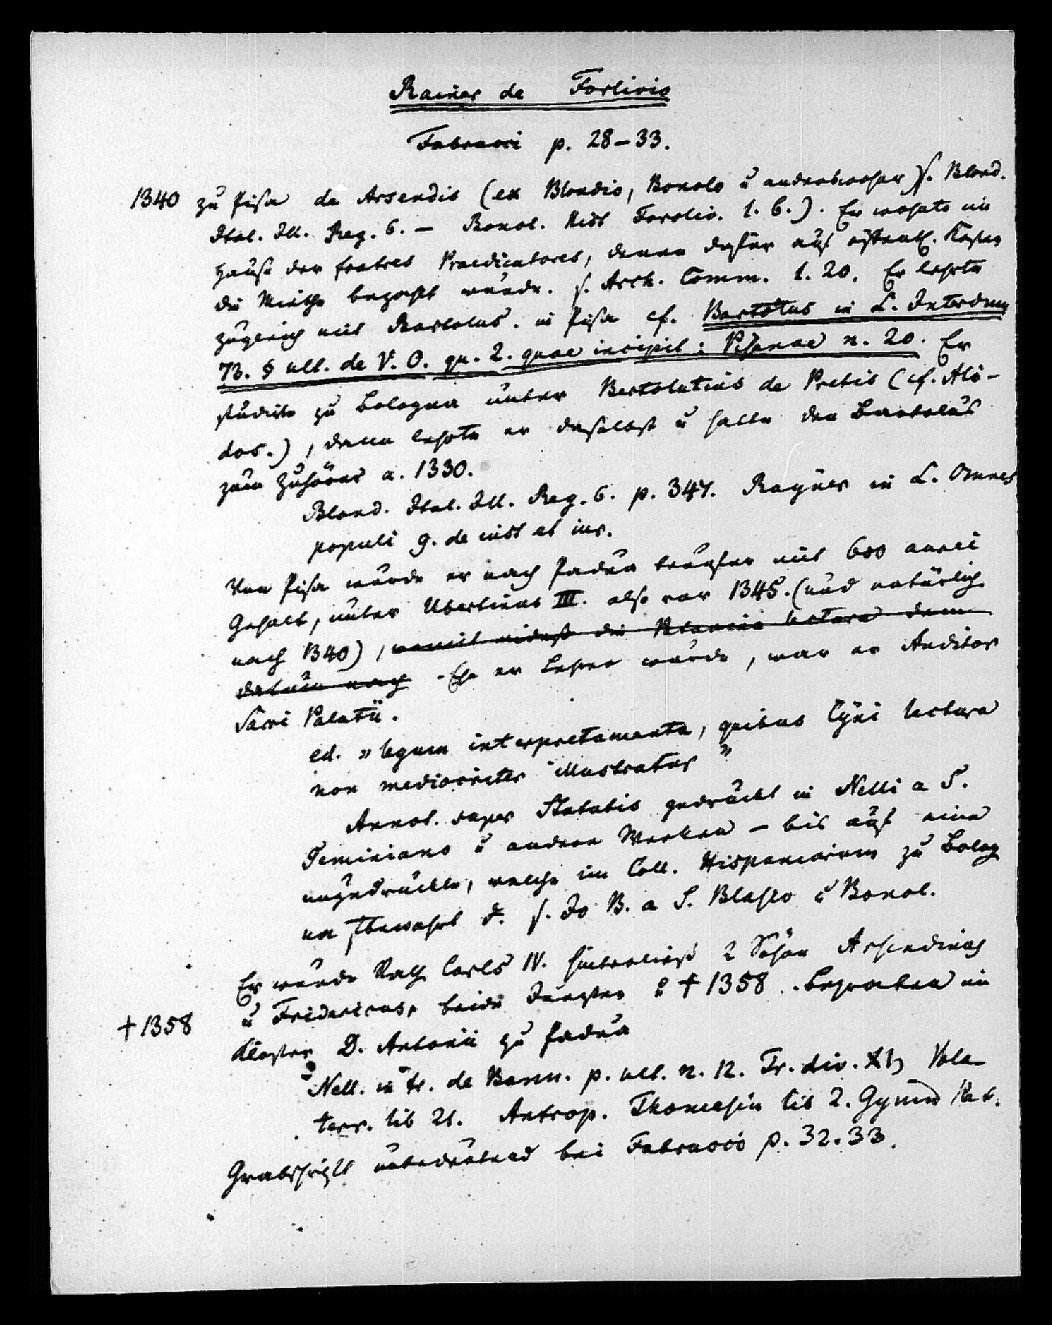 Rainer de Forlivio
Fabrucci p. 28–33.
1340 zu Pisa de Arsendis (ex Blondio, Bonolo u andern bisher) s. Blond.
Ital. Ill. Reg. 6. — Bonol. Hist Foroliv. l. 6.). Er wohnte im
Hause der fratres Praedicatores, denen dafür aus öffentl. Kasten
die Miethe bezahlt wurde. s. Arch. Comm. l. 20. Er lehrte
zugleich mit Bartolus. in Pisa cf. Bartolus in L. Interdum
73. § ult. de V. O. qu. 2. quae incipit: Pisanae n. 20. Er
studirte zu Bologna unter Bertolutius de Pretis (cf. Ali-
dos.), dann lehrte er daselbst u hatte den Bartolus
zum Zuhörer a. 1330.
Blond. Ital. Ill. Reg. 6. p. 347. Rayner in L. Omnes
populi 9. de iust et iur.
Von Pisa wurde er nach Padua berufen mit 600 aurei
Gehalt, unter Ubertinus III. also vor 1345. (und natürlich
nach 1340), womit die lectura dem
datum nach. Ehe er Lehrer wurde, war er Auditor
Sacri Palatii.
ed. „legum interpretamenta, quibus Cyni lectura
non mediocriter illustratur"
Annot. super Statutis gedruckt in Nelli a S.
Geminiano u andere Werken — bis auf eine
ungedruckte, welche im Coll. Hispanorum zu Bolog
na bewahrt d. s. Jo B. a S. Blasio u Bonol.
Er wurde Rath Carls IV. hinterließ 2 Söhne Arsendinus
u Fridericus, beide Juristen u † 1358. begraben im
† 1358
Kloster D. Antonii zu Padua
Nell. in tr. de Bann. p. ult. n. 12. Tr. div. Vola-
terr. lib 21. Antrop. Thomasin lib 2. Gymn Pat.
Grabschrift unbedeutend bei Fabrucci p. 32. 33.